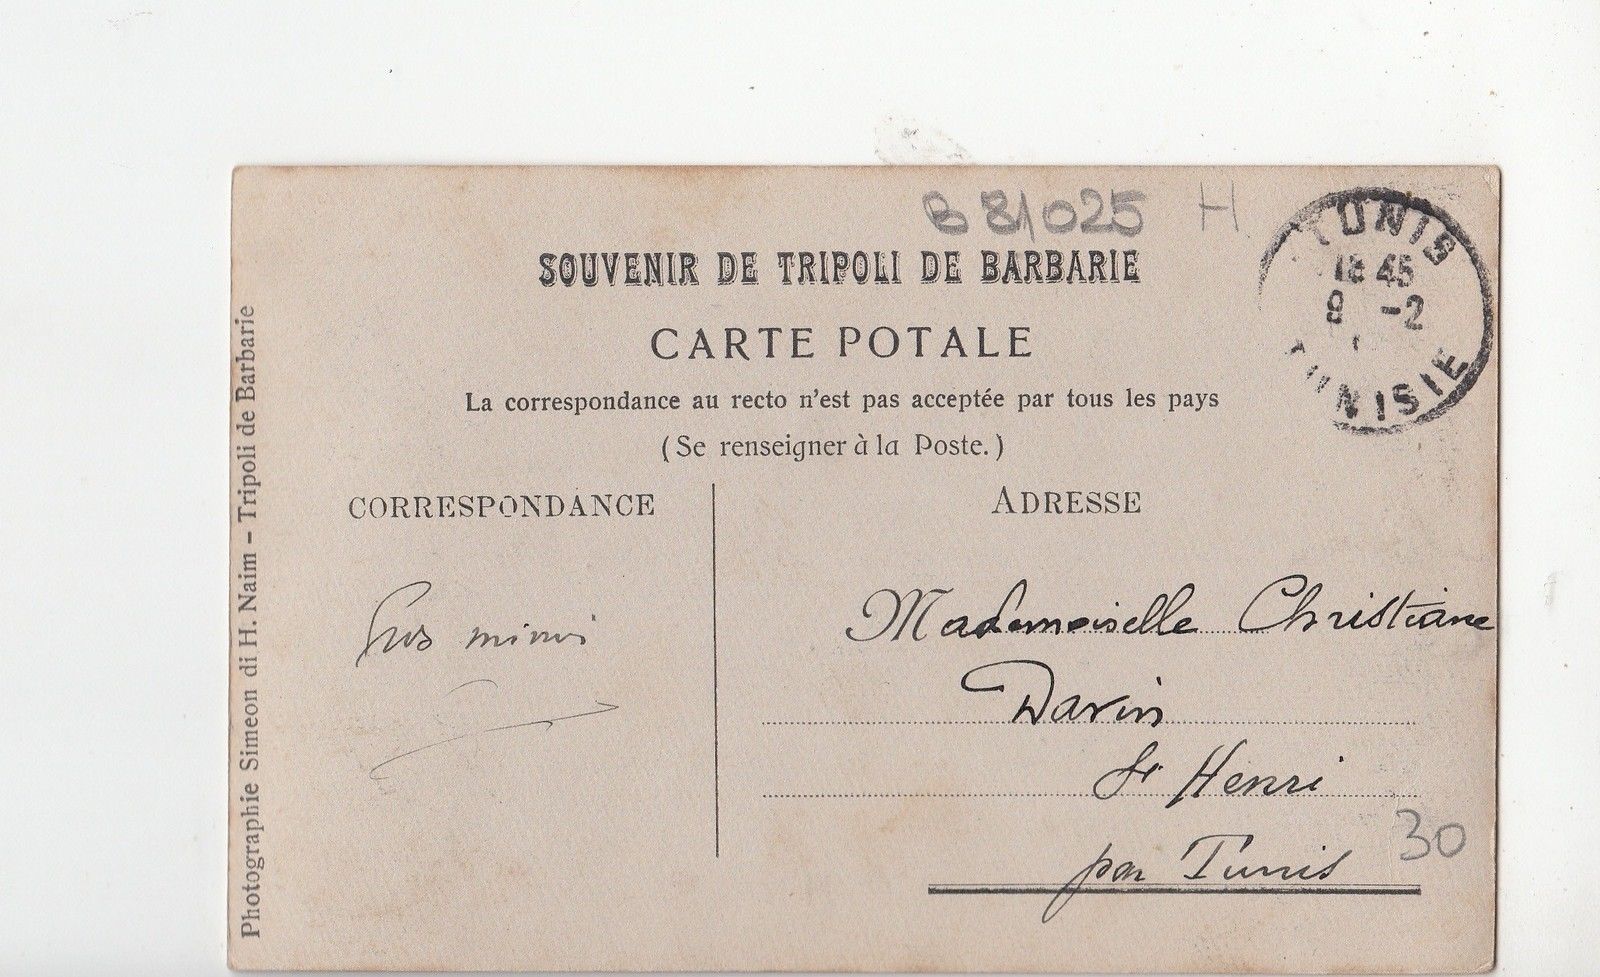 B 81025 H
SOUVENIR DE TRIPOLI DE BARBARIE
TUNIS
18 45
8 -2
TUNISIE
CARTE POTALE
La correspondance au recto n'est pas acceptée par tous les pays
(Se renseigner à la Poste.)
CORRESPONDANCE
ADRESSE
Mademoiselle Christiane
Darin
St Henri
par Tunis
30
Photographie Simeon di H. Naim - Tripoli de Barbarie